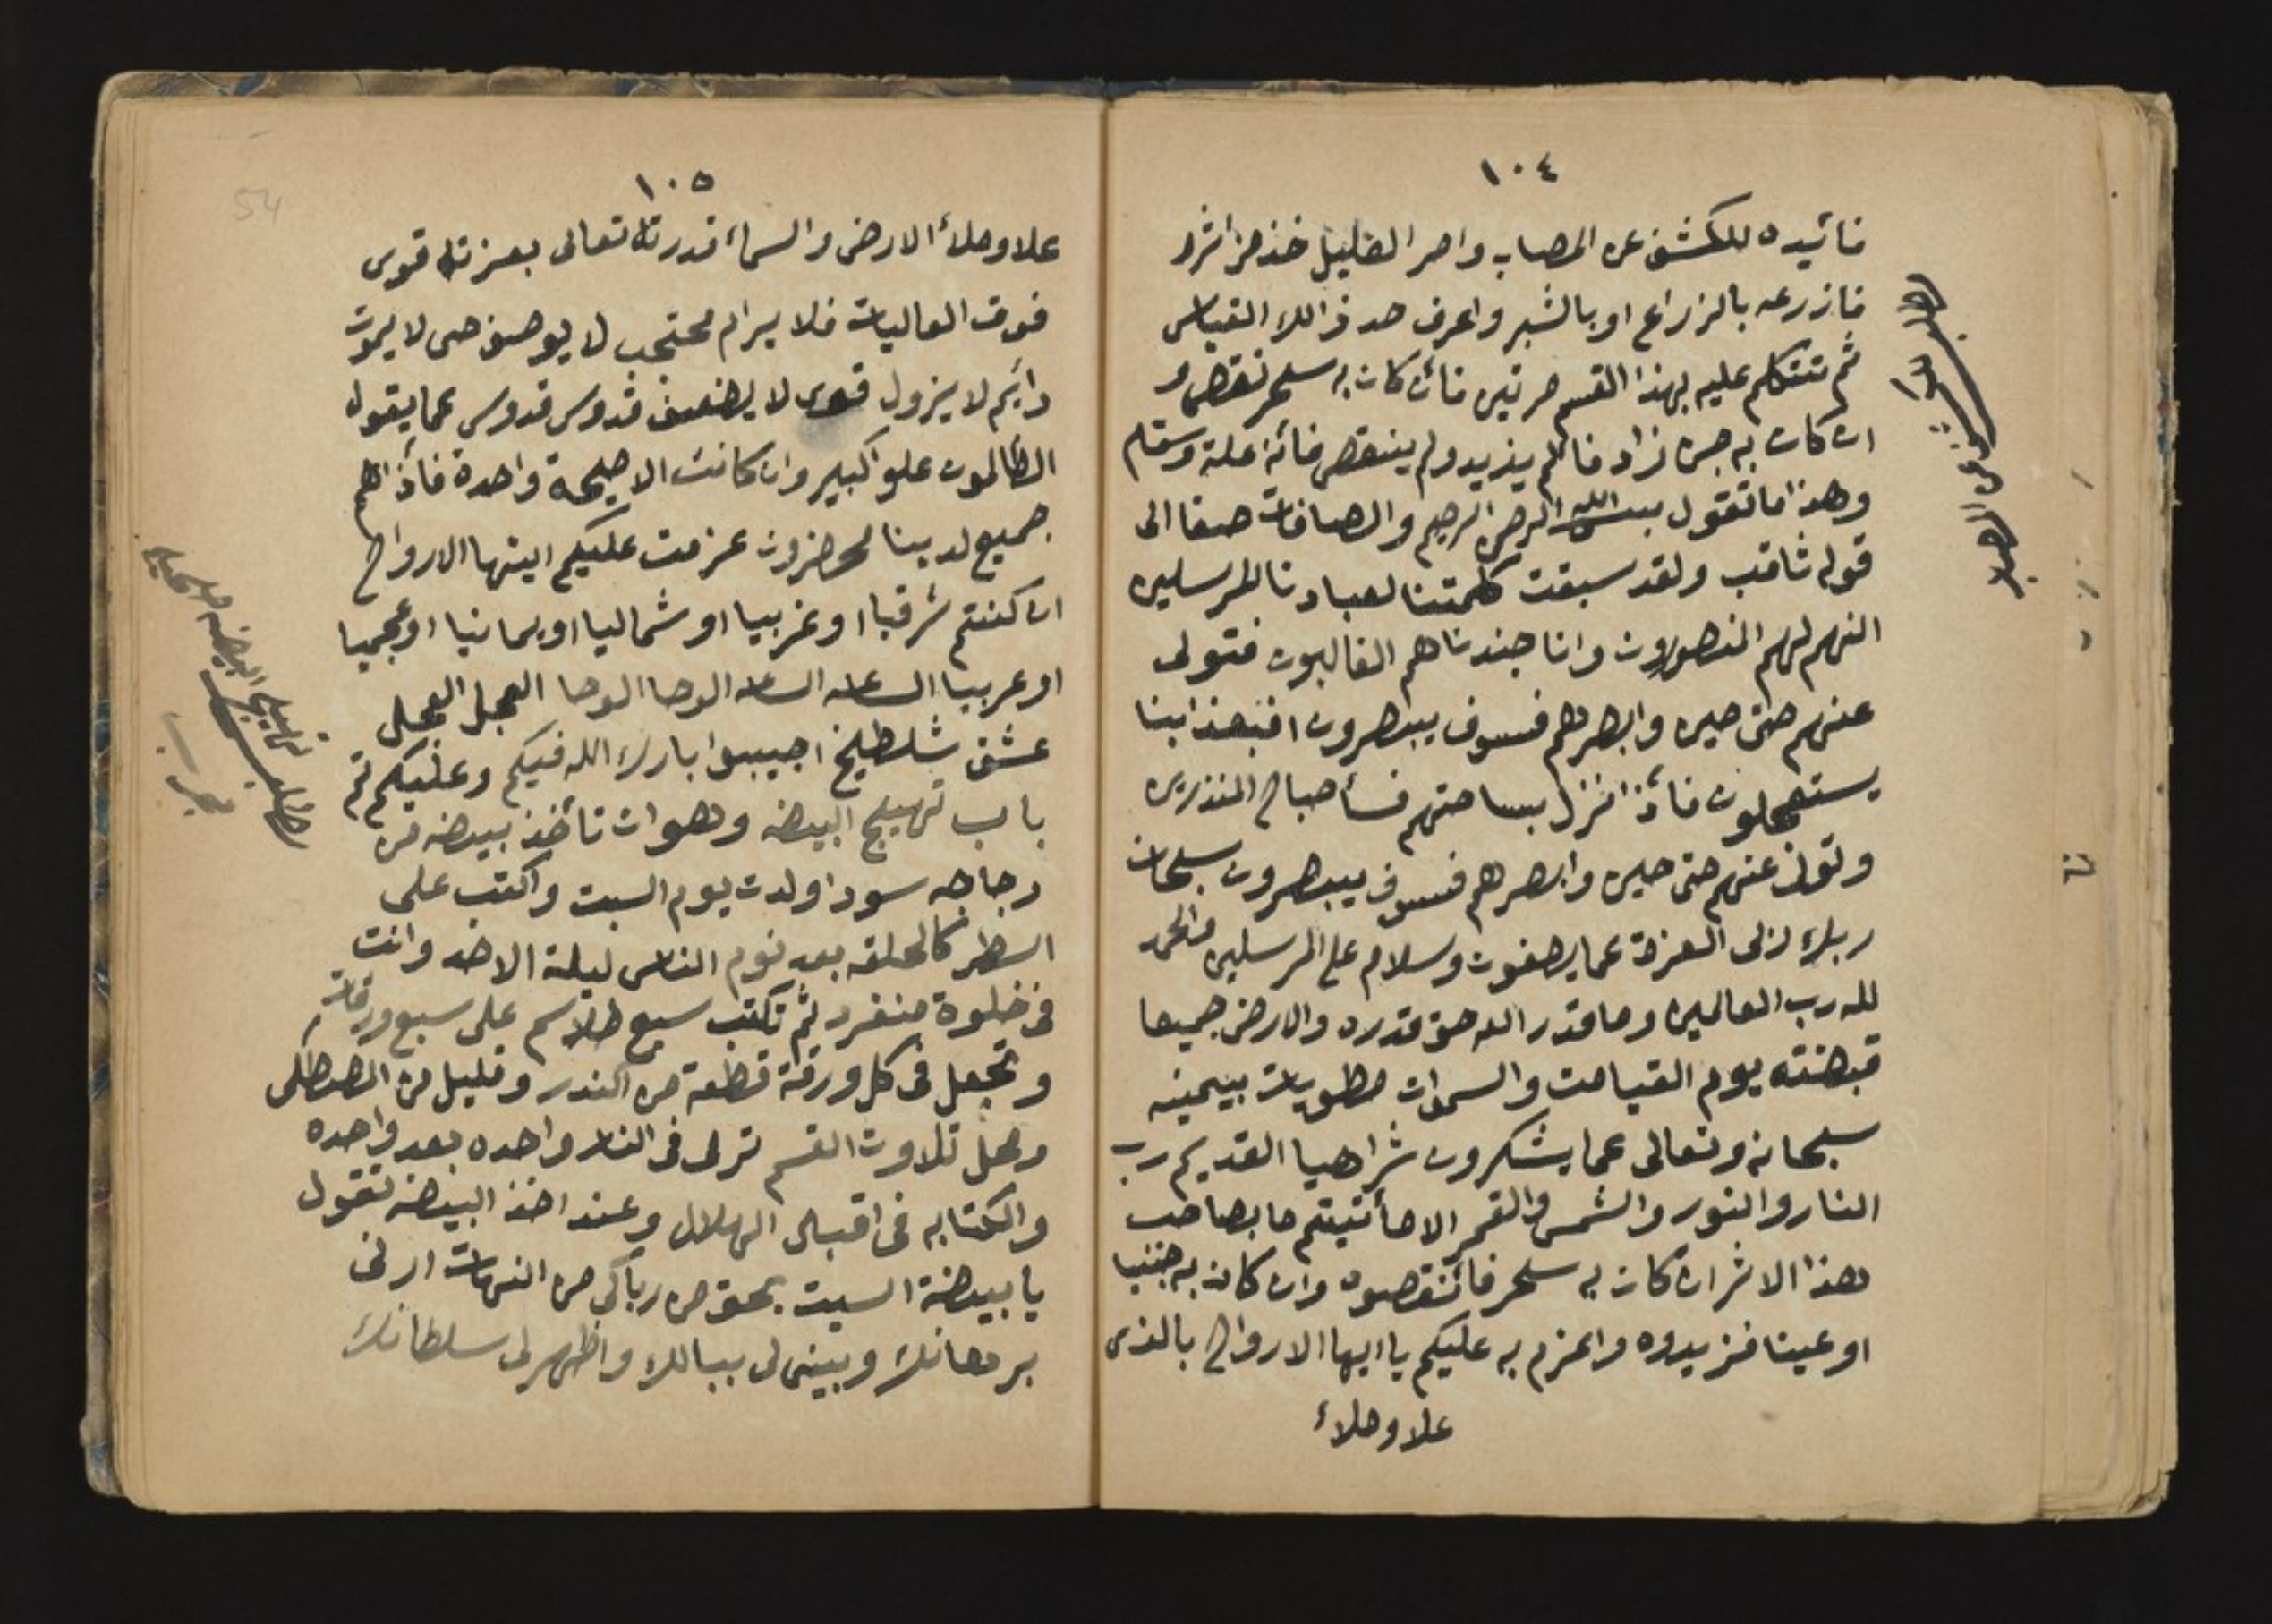 ١٠٤
فائيده للكشف عن المصاب وامر العليل خذ من اثره
فازرعه بالزراع او بالشبر واعرف حد ذالك القياس
ثم تتكلم عليه بهذا القسم مرتين فائن كان به سحر نقص و
ان كان به جن زاد فالم يذيد ولم ينقص فائنه علة وسقام
وهذا ما تقول بسم الله الرحمن الرحيم والصافات صفا الى
قوله ثاقب ولقد سبقت كلمتنا لعبادنا المرسلين
انهم لهم المنصورون وانا جندناهم الغالبون فتولى
عنهم حتى حين وابصرهم فسوف يبصرون افبعذابنا
يستعجلون فائذا نزل بساحتهم فسأ صباح المنذرين
وتول عنهم حتى حين وابصرهم فسوف يبصرون سبحان
ربك زلى العزة عما يصفون وسلام على المرسلين والحمد
لله رب العالمين وما قدر الله حق قدره والارض جميعا
قبضته يوم القيامت والسموات مطويات بيمينه
سبحانه وتعالى عما يشكرون شراهيا القديم رب
النار والنور والشمس والقمر الا مأتيتم ما بصاحب
هذا الاثر ان كان به سحر فائنقصوه وان كان به جننا
او عينا فزيدوه واعزم به عليكم يا ايها الارواح بالذى
علا وملاء
١٠٥
علا وملاء الارض والسماء قدرته تعالى بعزته قوى
فوق العاليات فلا يرام محتجب لا يوصف حى لا يموت
دايم لا يزول قوى لا يضعف قدوس قدوس عما يقول
الظالمون علوا كبير وان كانت الا صيحة واحدة فاذا هم
جميع لدينا محضرون عزمت عليكم ايتها الارواح
ان كنتم شرقيا او غربيا او شماليا او يمانيا او عجميا
او عربيا الساعه الساعه الوحا الوحا العجل العجل
عشق شلطيخ اجيبوا بارك الله فيكم وعليكم تم
باب تهييج البيضه وهو ان تأخذ بيضه من
دجاجه سودا ولدت يوم السبت واكتب على
اسطر كالحلقه بعد نوم الناس ليلة الاحد وانت
فى خلوة منفرد ثم تكتب سبع طلاسم على سبع ورقات
وتجعل فى كل ورقة قطعة من الكندر وقليل من المصطكى
وكل تلاوت القسم ترمى فى النار واحده بعد واحده
والكتابه فى اقبال الهلال وعند اخذ البيضه تقول
يا بيضة السبت بحق من رباكى من النبات ارنى
برهانك وبينى لى ببالك واظهر لى سلطانك
54